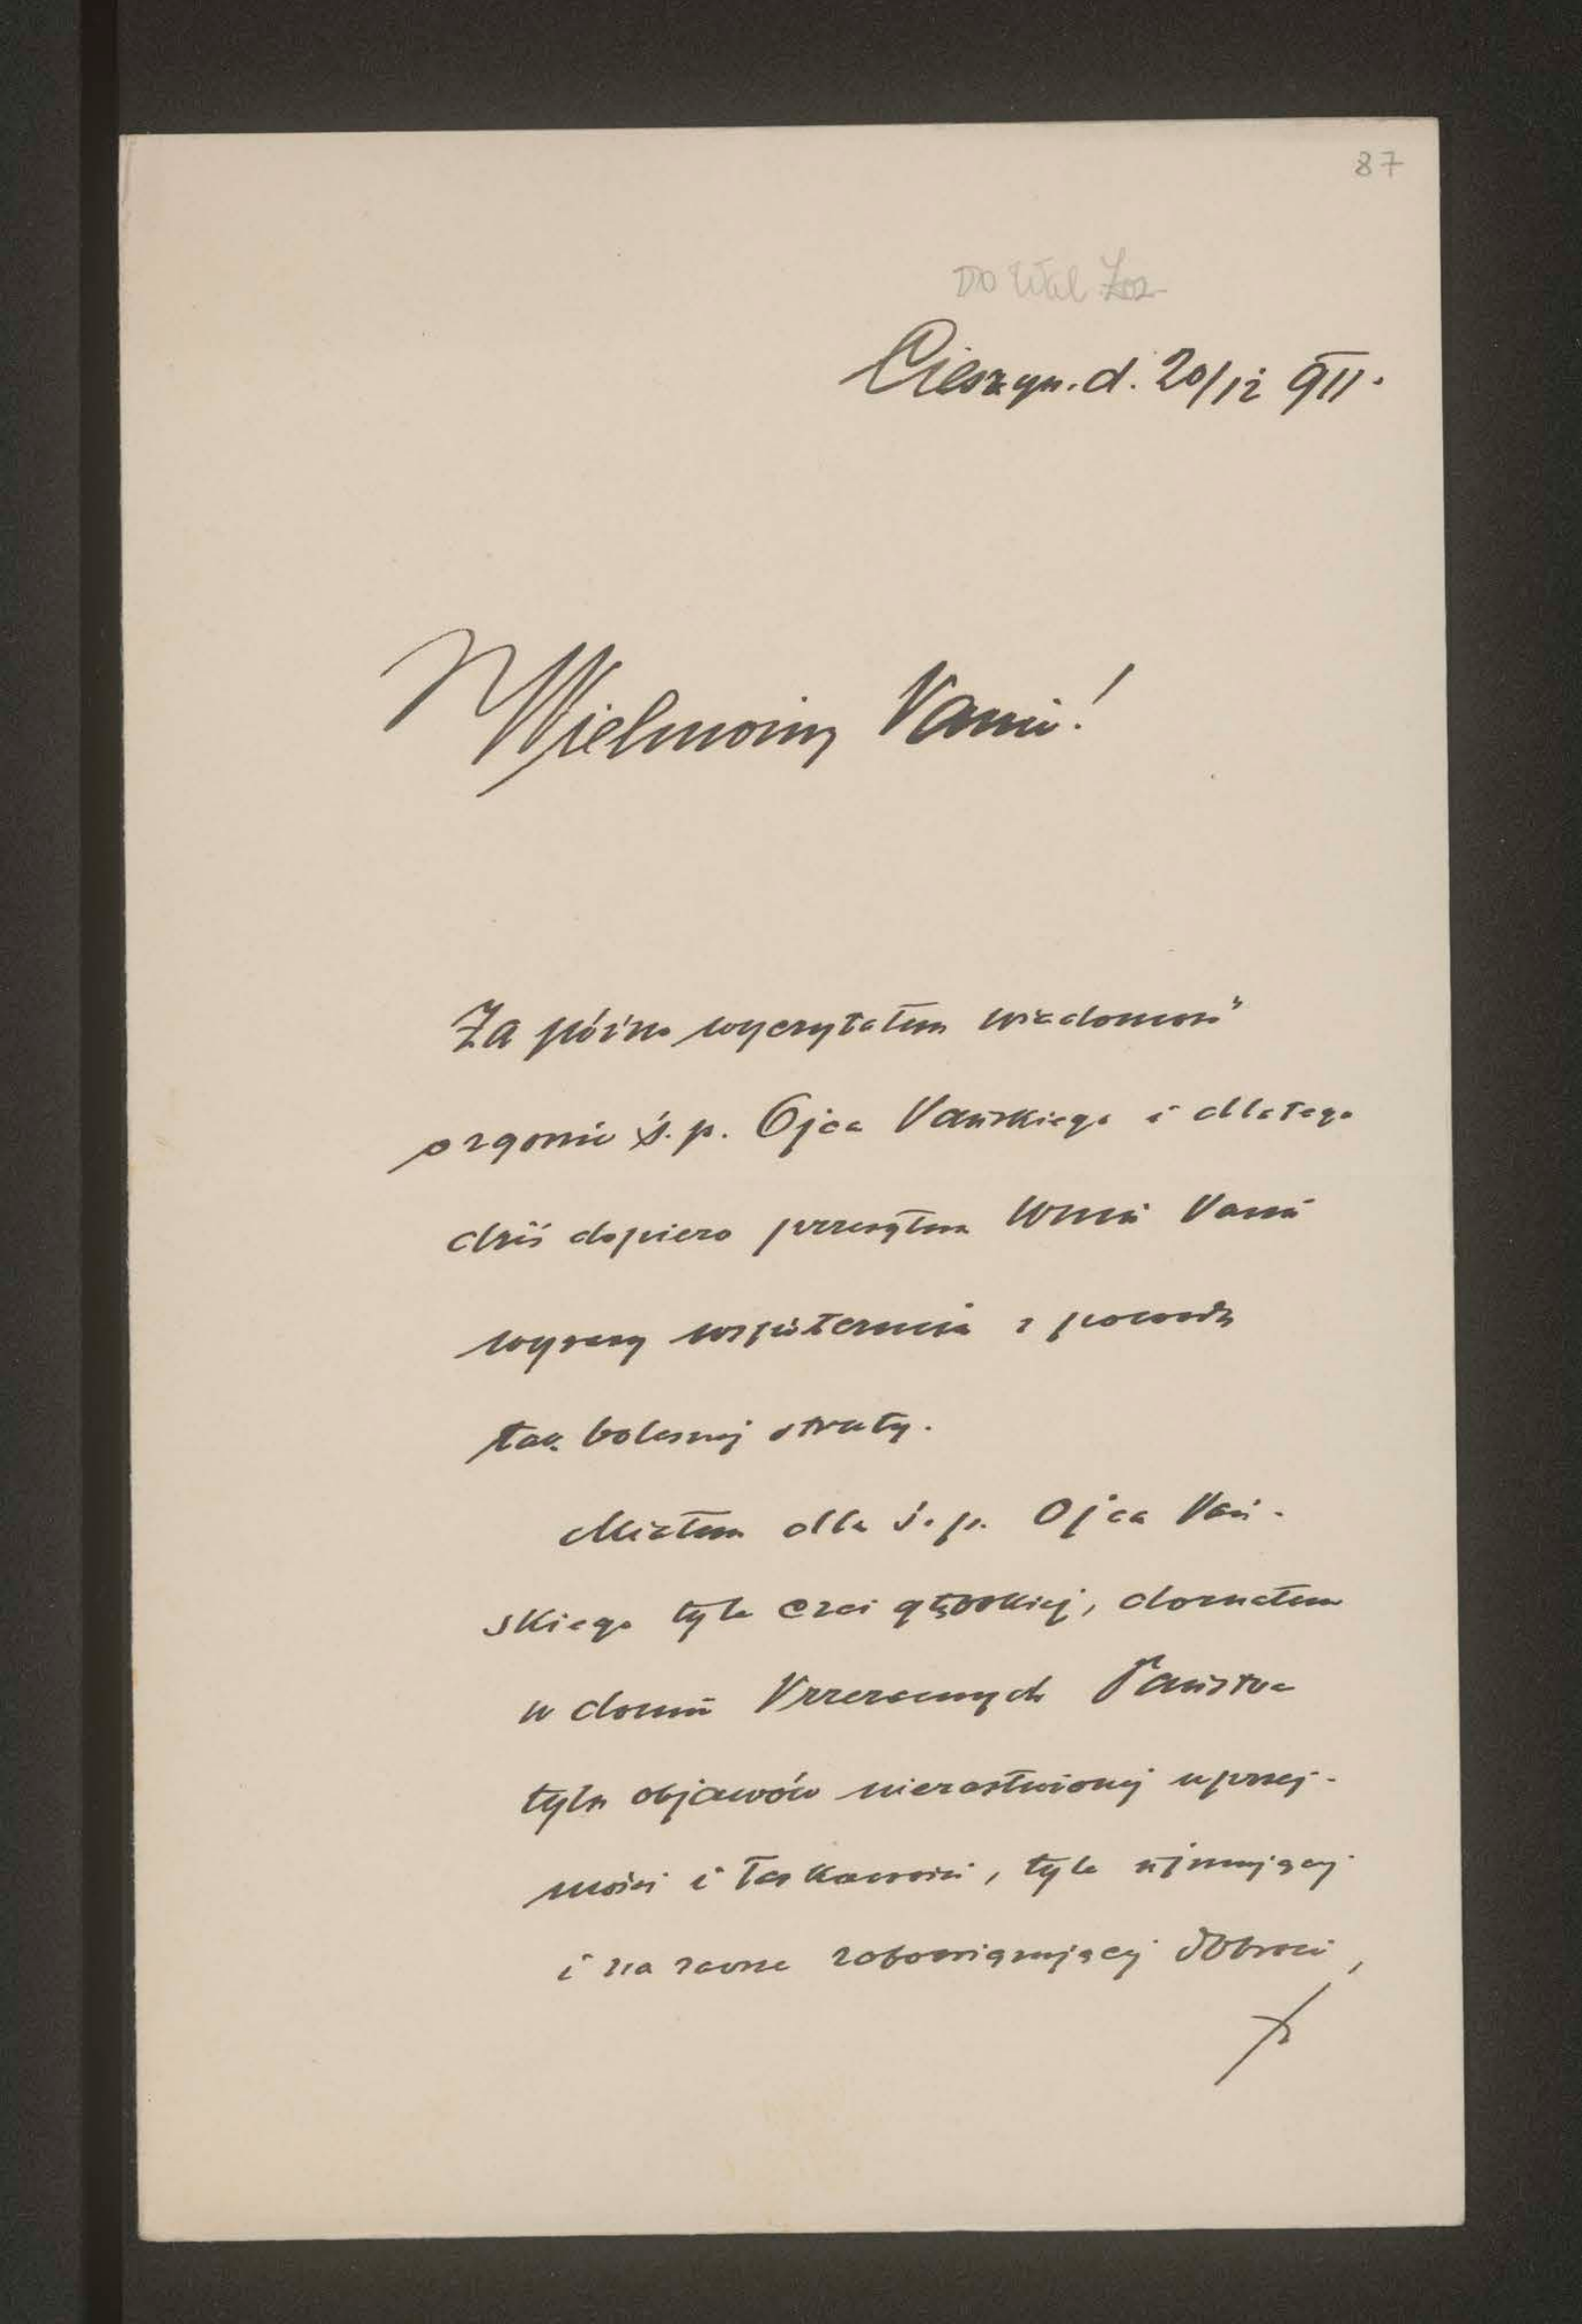 87
Do Wal
Cieszyn. d. 20/12 911.
Wielmożny Panie!
Za późno wyczytałem wiadomość
o zgonie ś. p. Ojca Pańskiego i dlatego
dziś dopiero przesyłam WPanu
wyrazy współczucia z powodu
tak bolesnej straty.
Miałem dla ś. p. Ojca Pań-
skiego tyle czci głębokiej, doznałem
w domu Przezacnych Państwa
tyle objawów niezasłużonej uprzej-
mości i łaskawości, tyle ujmującej
i na zawsze zobowiązującej dobroci,